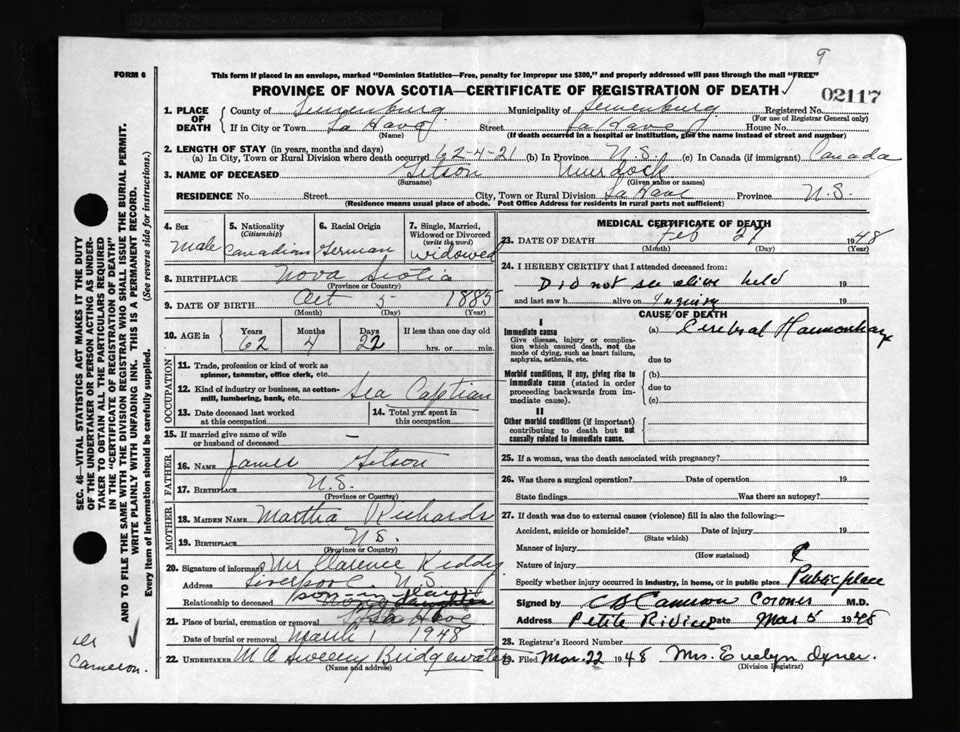 9
FORM 6
This form if placed in an envelope, marked "Dominion Statistics—Free, penalty for improper use $300," and properly addressed will pass through the mail "FREE"
PROVINCE OF NOVA SCOTIA—CERTIFICATE OF REGISTRATION OF DEATH
02117
1. PLACE OF DEATH
County of Lunenburg Municipality of Lunenburg Registered No.
(For use of Registrar General only)
If in City or Town La Have Street La Have House No.
(If death occurred in a hospital or institution, give the name instead of street and number)
2. LENGTH OF STAY (in years, months and days)
(a) In City, Town or Rural Division where death occurred 62-4-21 (b) In Province N.S. (c) In Canada (if immigrant) Canada
3. NAME OF DECEASED Getson Murdock
(Surname) (Given name or names)
RESIDENCE No. Street City, Town or Rural Division La Have Province N.S.
(Residence means usual place of abode. Post Office Address for residents in rural parts not sufficient)
4. Sex Male
5. Nationality (Citizenship) Canadian
6. Racial Origin German
7. Single, Married, Widowed or Divorced (write the word) widowed
8. BIRTHPLACE Nova Scotia
(Province or Country)
9. DATE OF BIRTH Oct 5 1885
(Month) (Day) (Year)
10. AGE in Years 62 Months 4 Days 22 If less than one day old hrs. or min.
OCCUPATION
11. Trade, profession or kind of work as spinner, teamster, office clerk, etc.
12. Kind of industry or business, as cotton-mill, lumbering, bank, etc. Sea Captian
13. Date deceased last worked at this occupation
14. Total yrs. spent in this occupation
15. If married give name of wife or husband of deceased –
FATHER
16. NAME James Getson
17. BIRTHPLACE N.S.
(Province or Country)
MOTHER
18. MAIDEN NAME Martha Richards
19. BIRTHPLACE N.S.
(Province or Country)
20. Signature of informant Mr Clarence Keddy
Address Liverpool. N.S.
Relationship to deceased son-in-law
21. Place of burial, cremation or removal La Have
Date of burial or removal March 1 1948
22. UNDERTAKER M A Sweeny Bridgewater
(Name and address)
MEDICAL CERTIFICATE OF DEATH
23. DATE OF DEATH Feb 27 1948
(Month) (Day) (Year)
24. I HEREBY CERTIFY that I attended deceased from:
Did not see alive held 19
and last saw h alive on Inquiry 19
CAUSE OF DEATH
I
Immediate cause (a) Cerebral Haemonhage
Give disease, injury or complication which caused death, not the mode of dying, such as heart failure, asphyxia, asthenia, etc.
due to
Morbid conditions, if any, giving rise to immediate cause (stated in order proceeding backwards from immediate cause).
(b)
due to
(c)
II
Other morbid conditions (if important) contributing to death but not causally related to immediate cause.
25. If a woman, was the death associated with pregnancy?
26. Was there a surgical operation? Date of operation 19
State findings Was there an autopsy?
27. If death was due to external causes (violence) fill in also the following:—
Accident, suicide or homicide? Date of injury 19
(State which)
Manner of injury
(How sustained)
Nature of injury
Specify whether injury occurred in industry, in home, or in public place Public place
Signed by C B Cameron Coroner M.D.
Address Petite Riviere Date Mar 5 1948
28. Registrar's Record Number
29. Filed Mar. 22 1948 Mrs. Evelyn
(Division Registrar)
SEC. 46—VITAL STATISTICS ACT MAKES IT THE DUTY
OF THE UNDERTAKER OR PERSON ACTING AS UNDER-
TAKER TO OBTAIN ALL THE PARTICULARS REQUIRED
IN THE "CERTIFICATE OF REGISTRATION OF DEATH"
AND TO FILE THE SAME WITH THE DIVISION REGISTRAR WHO SHALL ISSUE THE BURIAL PERMIT.
WRITE PLAINLY WITH UNFADING INK. THIS IS A PERMANENT RECORD.
Every item of information should be carefully supplied. (See reverse side for instructions.)
Cameron.